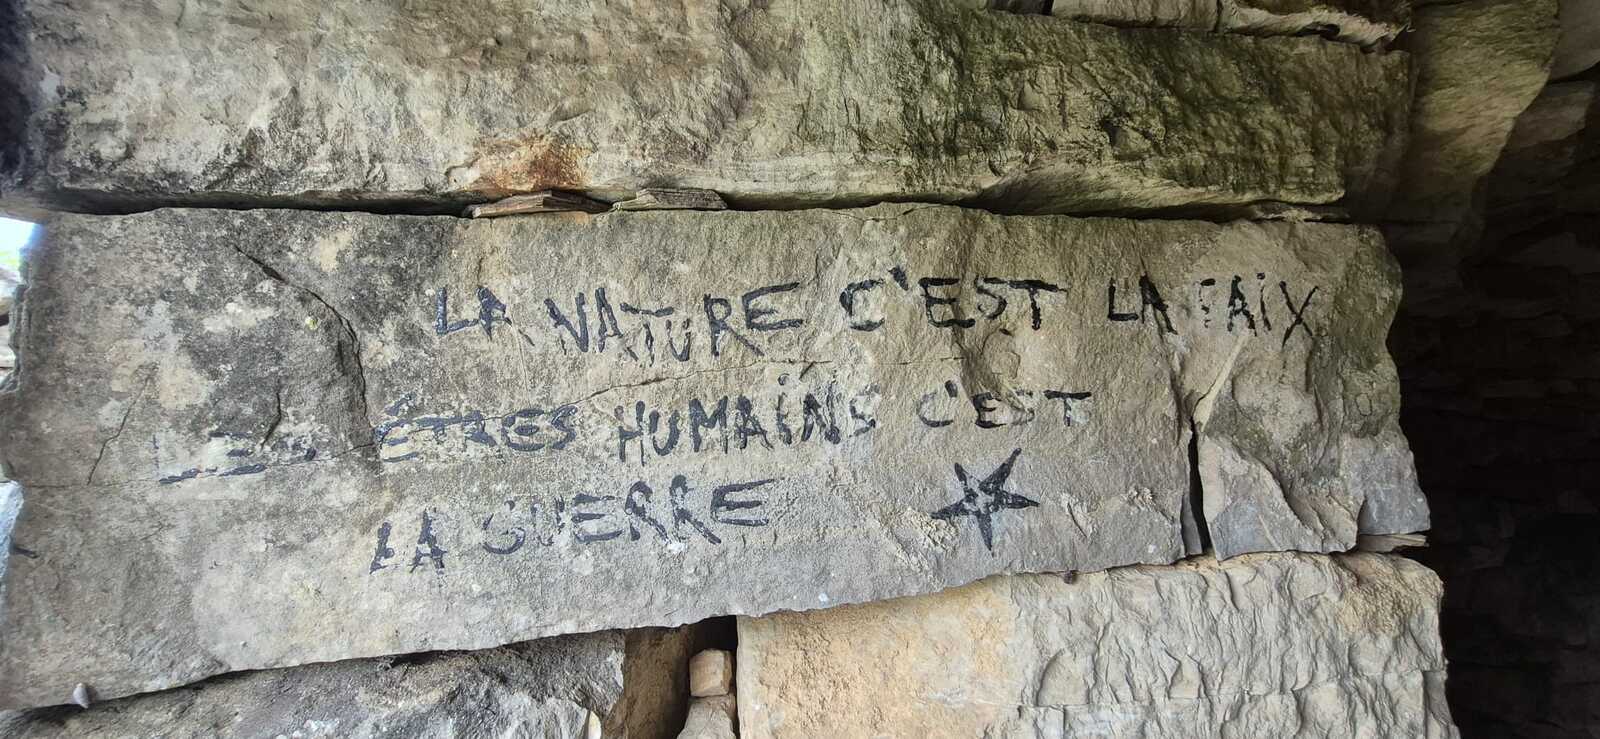 LA NATURE C'EST LA PAIX
LES ÊTRES HUMAINS C'EST
LA GUERRE